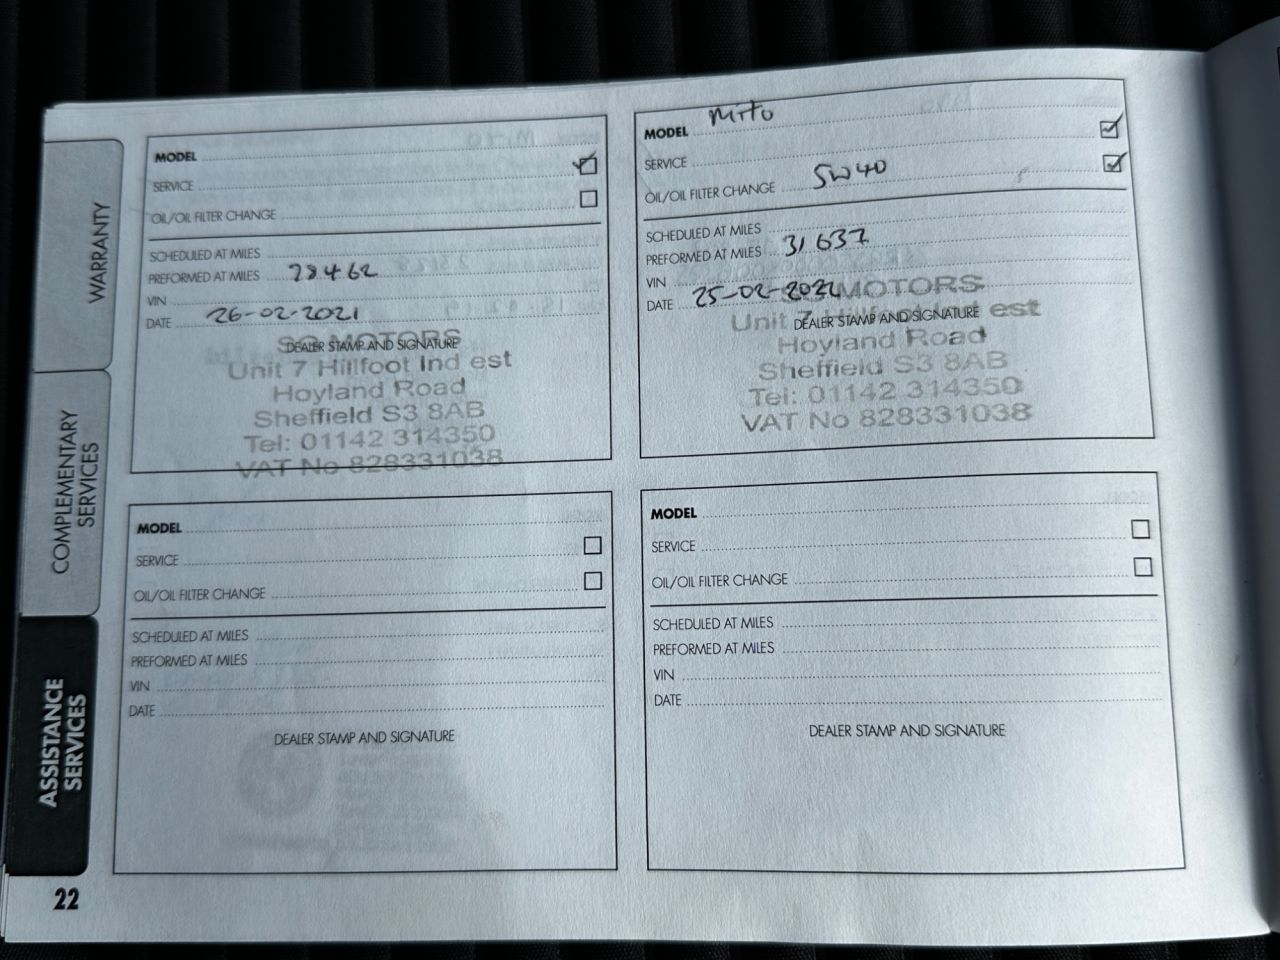 WARRANTY
COMPLEMENTARY
SERVICES
ASSISTANCE
SERVICES
MODEL
SERVICE
OIL/OIL FILTER CHANGE
SCHEDULED AT MILES
PREFORMED AT MILES 28462
VIN
DATE 26-02-2021
DEALER STAMP AND SIGNATURE
MOTORS
Unit 7 Hillfoot Ind est
Hoyland Road
Sheffield S3 8AB
Tel: 01142 314350
VAT No 828331038
MODEL MiTo
SERVICE
OIL/OIL FILTER CHANGE 5W40
SCHEDULED AT MILES
PREFORMED AT MILES 31637
VIN
DATE 25-02-2022
DEALER STAMP AND SIGNATURE
MOTORS
Unit 7 Hillfoot Ind est
Hoyland Road
Sheffield S3 8AB
Tel: 01142 314350
VAT No 828331038
MODEL
SERVICE
OIL/OIL FILTER CHANGE
SCHEDULED AT MILES
PREFORMED AT MILES
VIN
DATE
DEALER STAMP AND SIGNATURE
MODEL
SERVICE
OIL/OIL FILTER CHANGE
SCHEDULED AT MILES
PREFORMED AT MILES
VIN
DATE
DEALER STAMP AND SIGNATURE
22